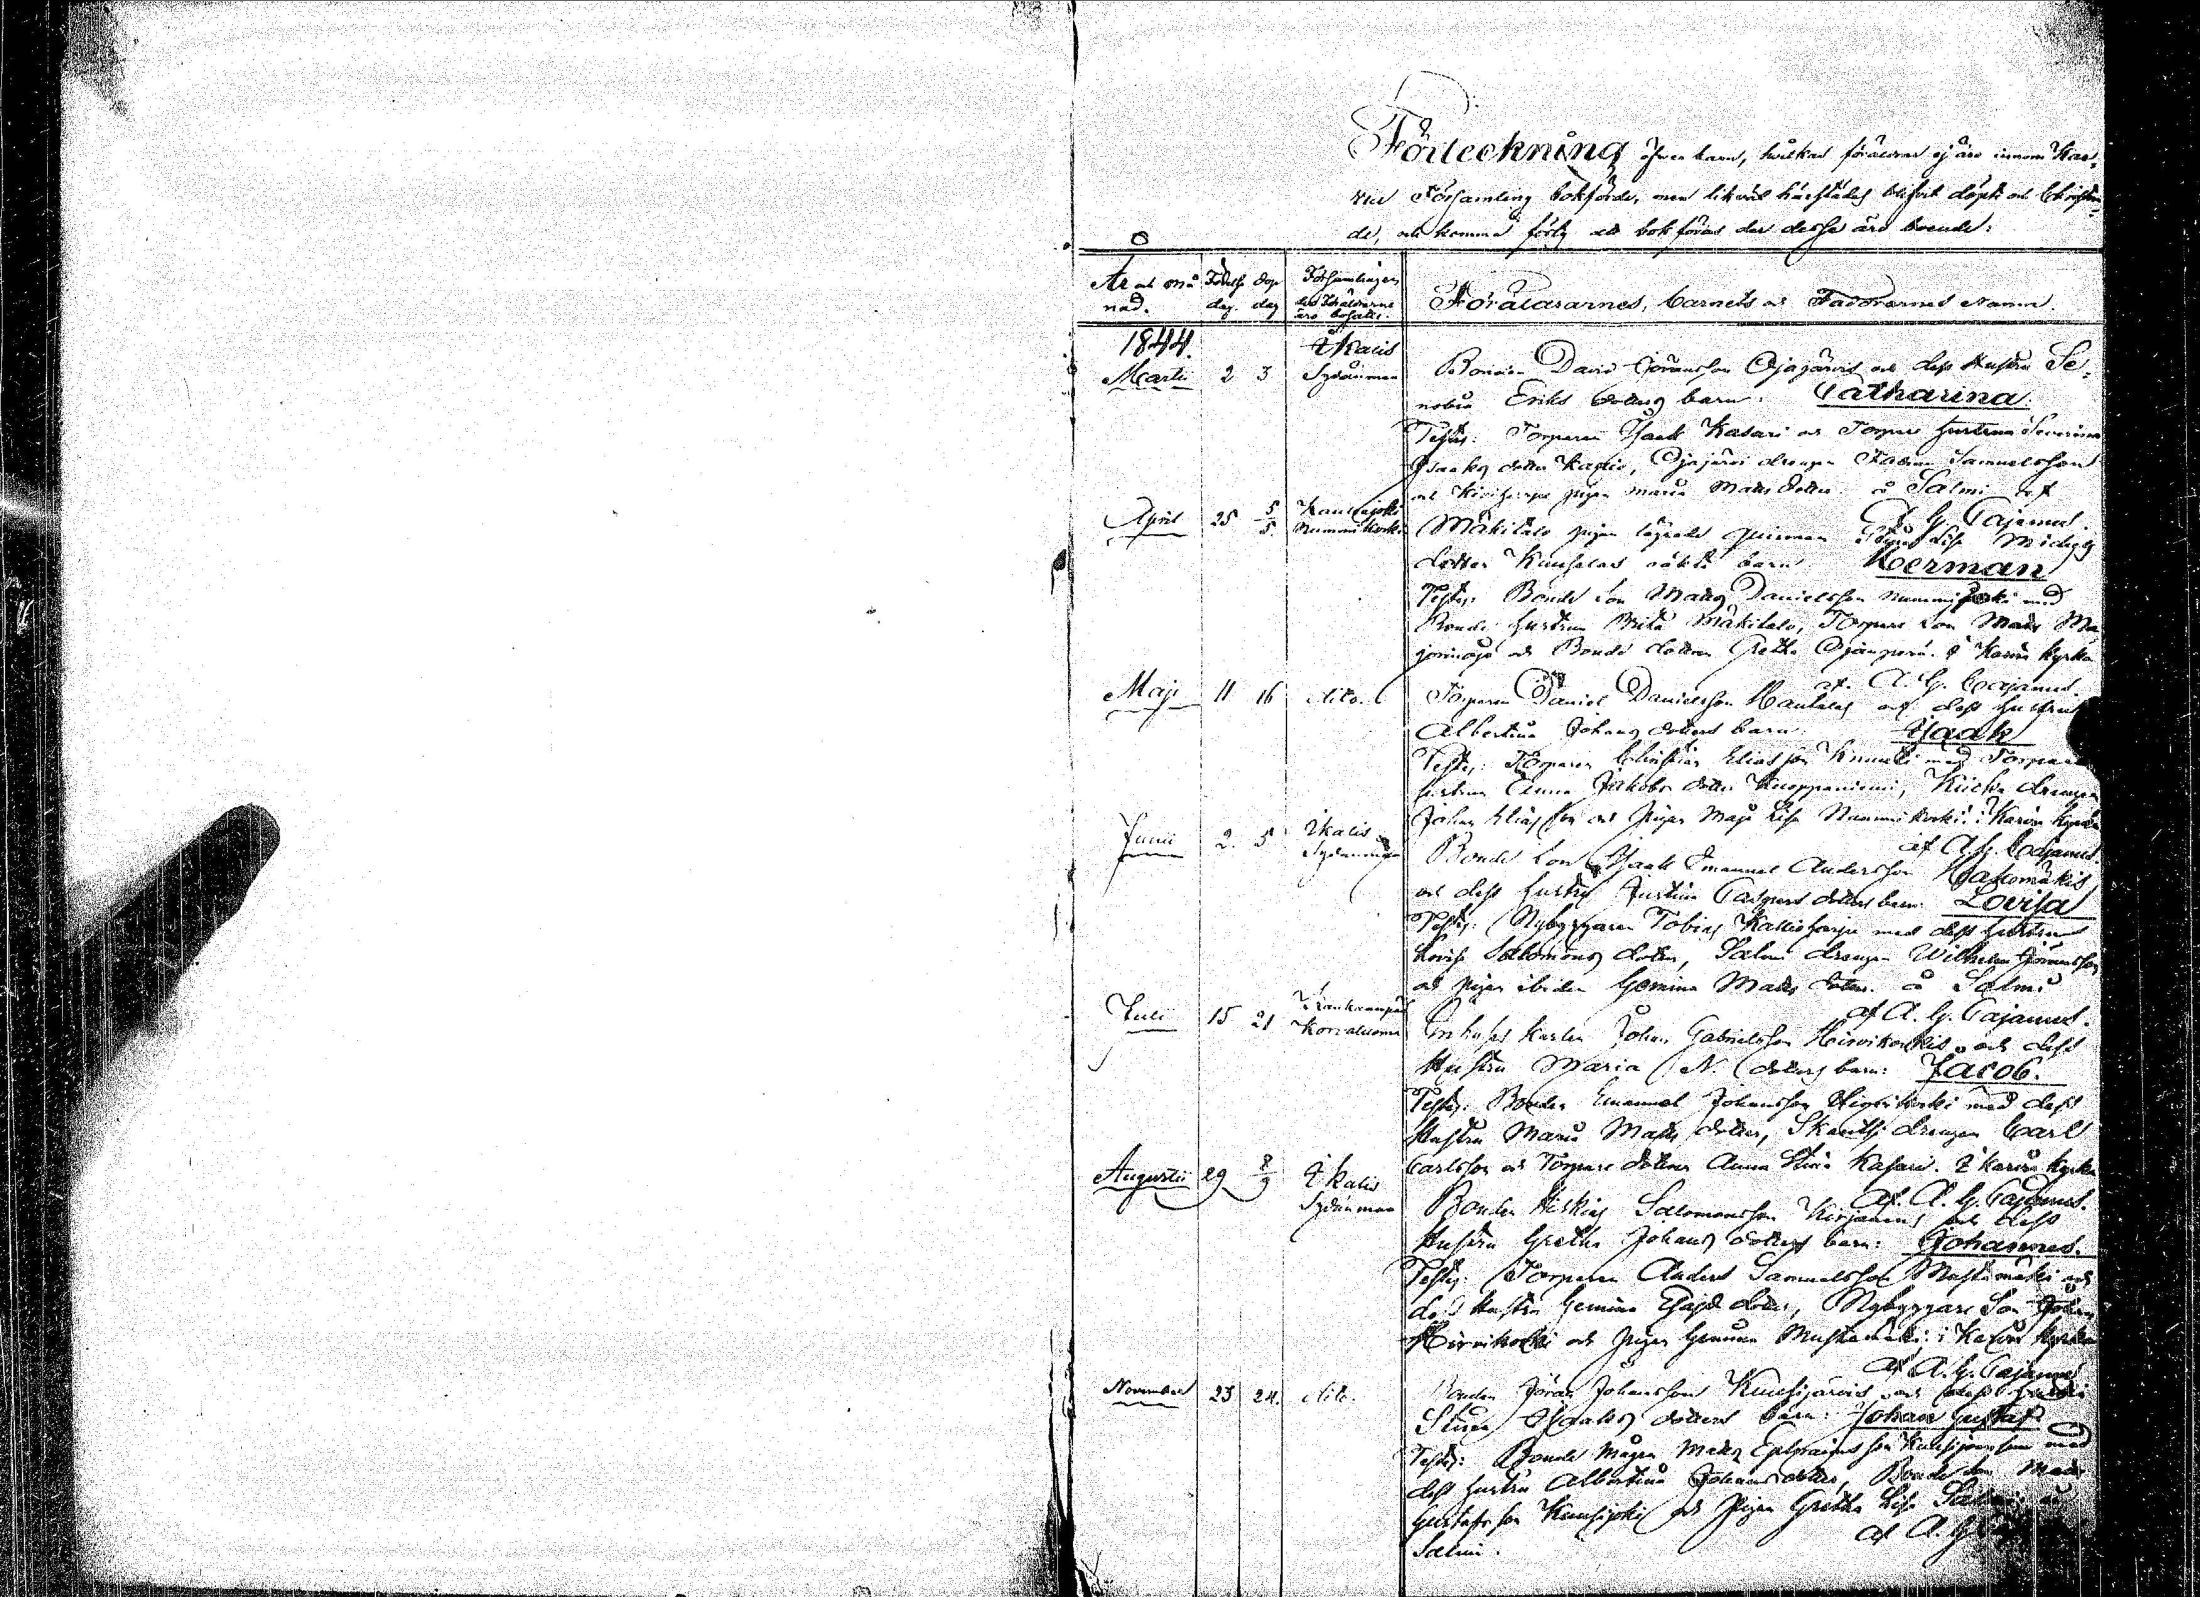 Förteckning öfver barn, hvilkas föräldrar ej äro inom Kar-
via Församling bokförde, men likväl härstädes blifvit döpte och Christna-
de, och komma förty att bokföras der dessa äro boende:
År och må- Födelse Dop Församlingen
nad. dag. dag der Föräldrarne Föräldrarnes, barnets och Faddrarnes namn.
äro bosatte.
1844. Ikalis
Martii 2 3 Sydänmaa Bonden David Göransson Ojajärvis och dess Hustru Se-
nobia Eriks dotters barn: Catharina.
Testes: Torparen Isaak Kasari och Torpare hustrun Severina
Isaaks dotter, Ojajärvi drengen Fabian Samuelsson
och pigan Maria Mats dotter å Salmi af
A. G. Cajanus.
April 25 5/5 Kauhajoki Nummikoski Mäkitalo pigan lägrade qvinnan Lisa Michels
dotter oäkta barn Herman
Testes: Bonde Son Matts Danielsson Nummijoki med
Bonde hustrun Brita Mäkitalo, Torpare Son Matts
och Bonde dottren Gretha Ojanperä. i Karvia kyrka
af A. G. Cajanus.
Maji 11 16 dito. Torparen Daniel Danielsson Rantalas och dess hustrus
Albertina Johans dotters barn Isaak
Testes: Torparen Christian Eliasson med Torpare
hustrun Anna Jakobs dotter Knoppaniemi, drengen
Johan Eliasson och Pigan Maja Lisa Nummikoski; i Karvia kyrka
af A. G. Cajanus.
Junii 2. 5 Ikalis Sydänmaa Bonde Son Isaak Emanuel Andersson
och dess hustru Justina Caspers dotters barn: Lovisa
Testes: Nybyggaren Tobias Kallioharju med dess hustru
Lovisa Salomons dotter, Salmi drengen Wilhelm Göransson
och pigan ibidem Gemina Matts dotter. å Salmi
af A. G. Cajanus.
Julii 15 21 Kankaanpää Korvaluoma Inhyses karlen Johan Gabrielsson Hirvikoskis och dess
Hustru Maria N. dotters barn: Jacob.
Testes: Bonden Emanuel Johansson Hirvikoski med dess
Hustru Maria Matts dotter, Skantsi drengen Carl
Carlsson och Torpare dottren Anna Stina Kasari. i Karvia kyrka
af A. G. Cajanus.
Augustii 29 8/9 Ikalis Sydänmaa Bonden Hiskias Salomonsson och dess
Hustru Gretha Johans dotters barn: Johannes.
Testes: Torparen Anders Samuelsson Mustamäki och
dess Hustru Gemina Esaja dotter, Nybyggare Son Johan
Hirvikoski och pigan Gemina Mustamäki; i Karvia kyrka
af A. G. Cajanus
November 23 24. dito. Bonden Jöran Johansson Kuusijärvis och dess hustru
Stina Isaaks dotters barn: Johan Gustaf
Testes: Bonde mågen Matts Ephraimsson med
dess hustru Albertina Johans dotter, Bonde son Matts
Gustafsson Kuusijoki och Pigan Gretha Lisa Salmi, å
Salmi. af A. G.